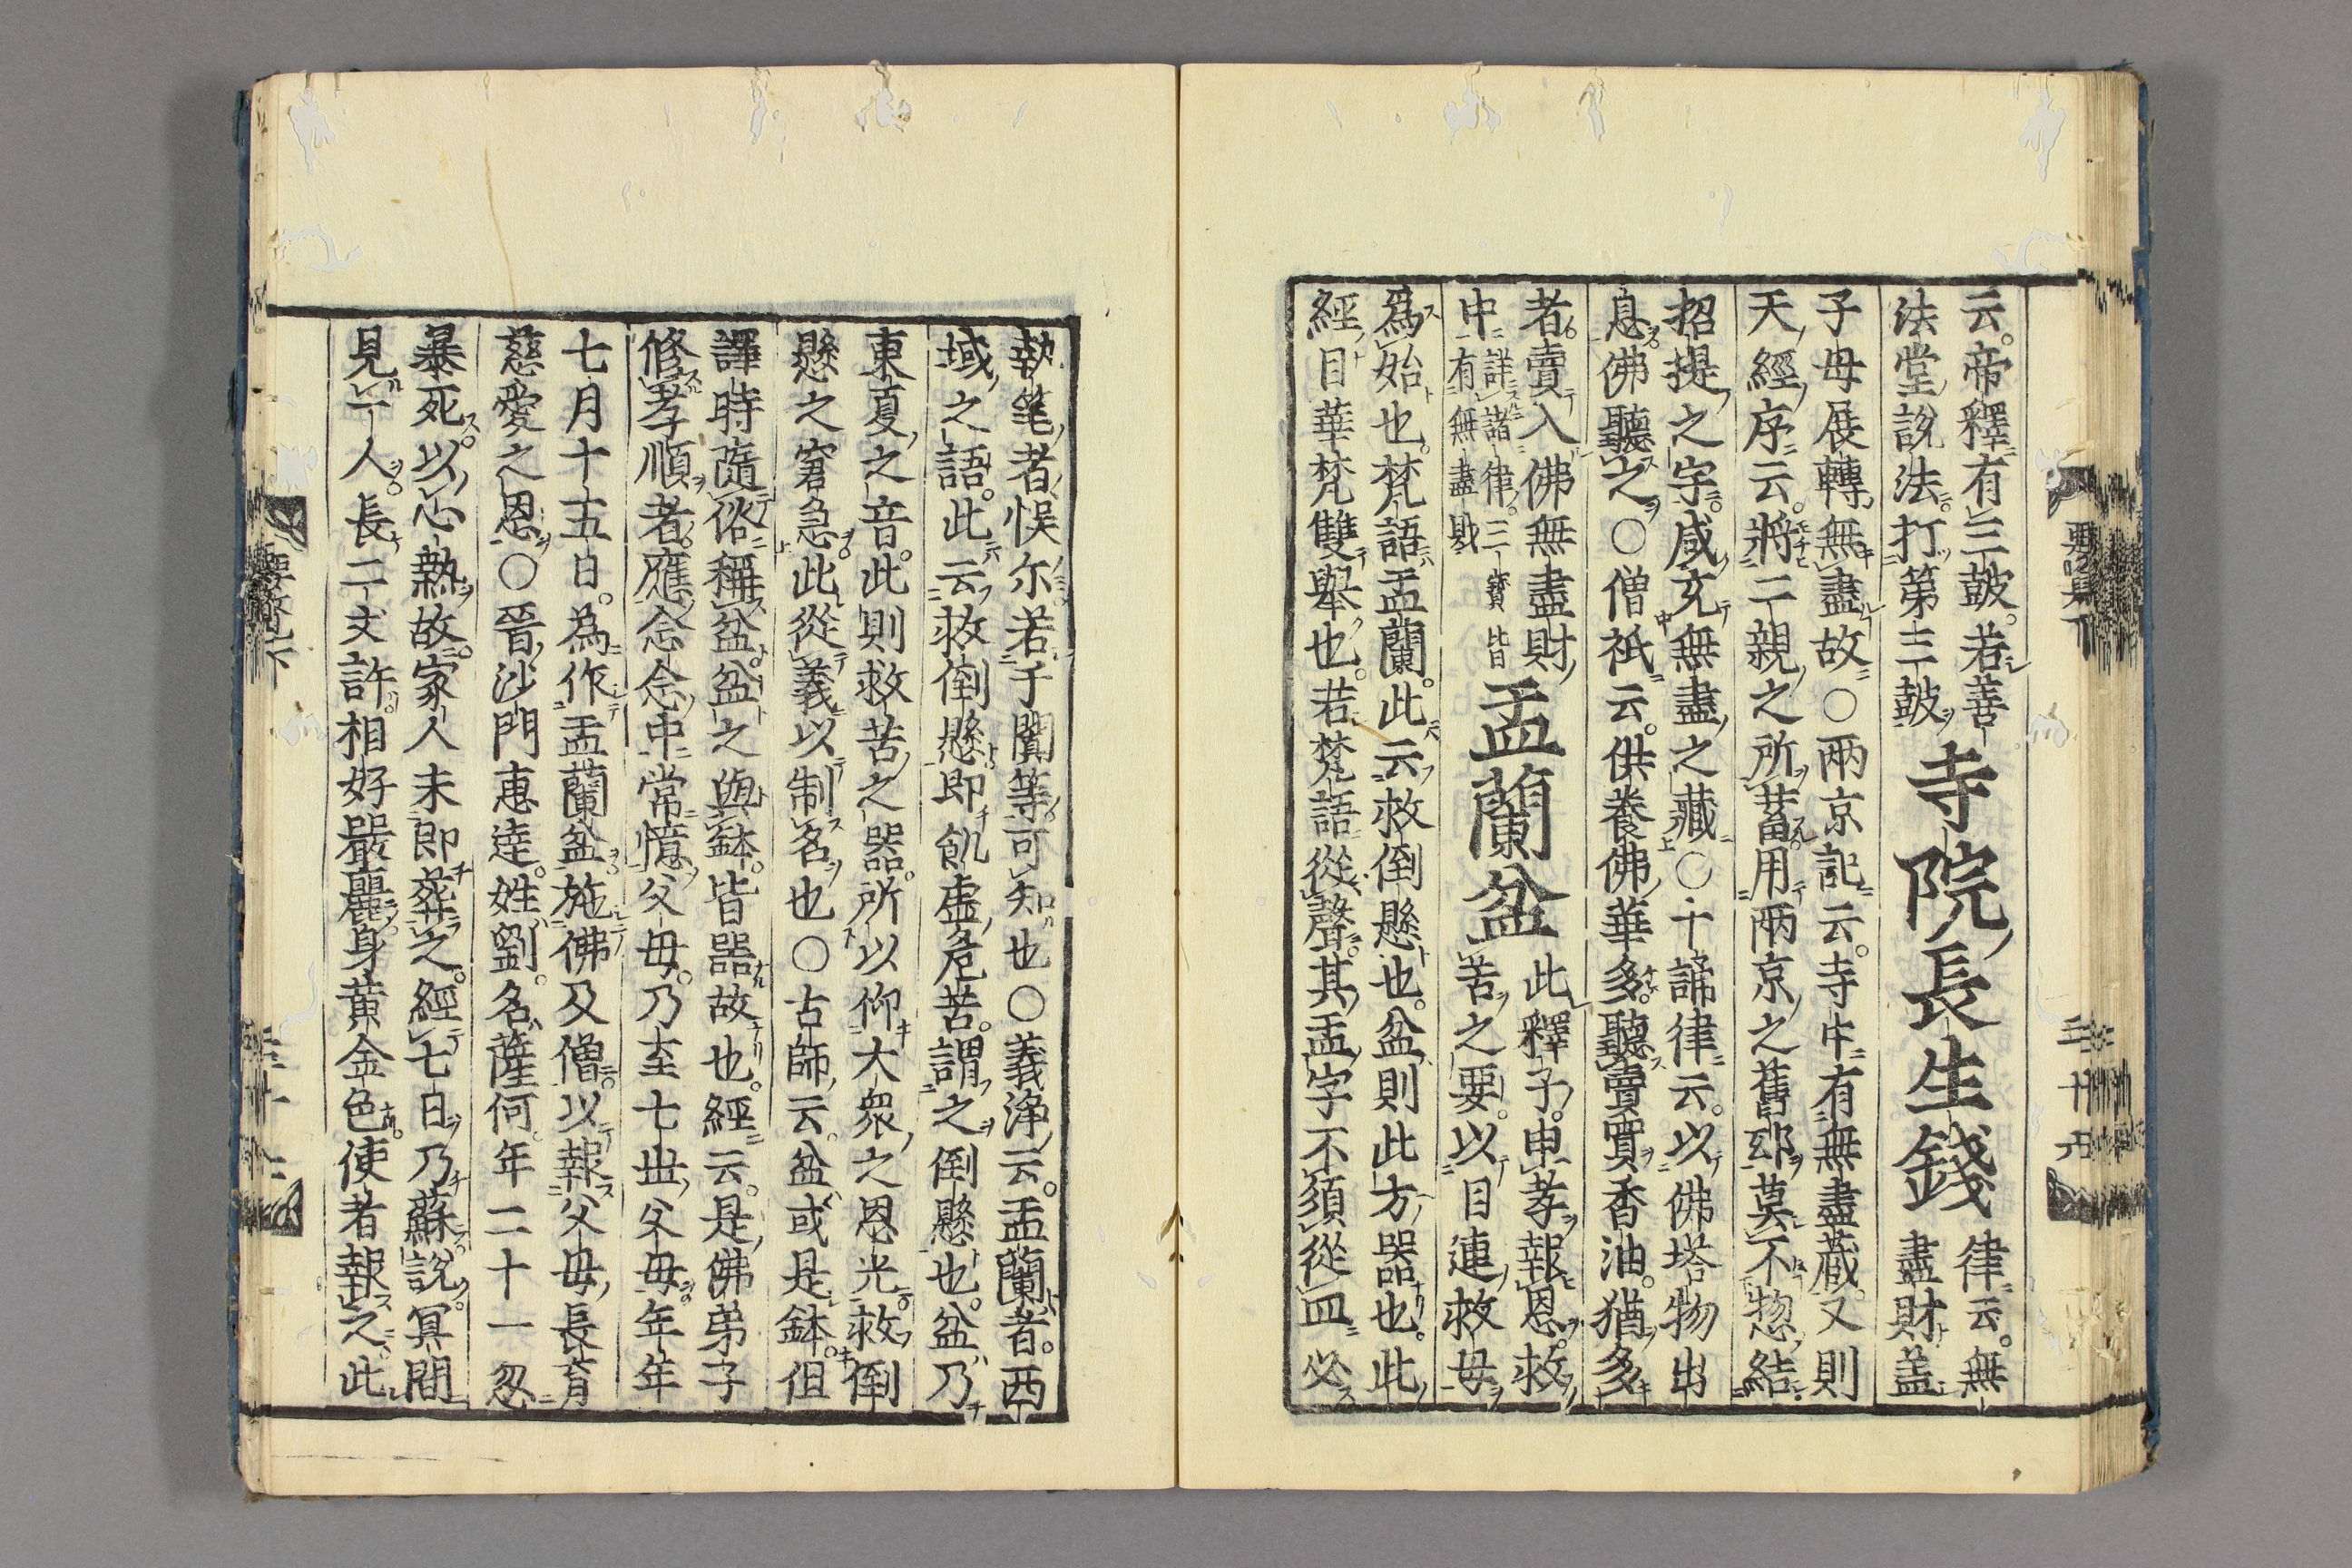 要覧下
三十九
云。帝釋有三皷。若善
法堂説法。打第三皷
寺院長生錢
律云。無
盡財蓋
子母展轉無盡故○兩京記云。寺中有無盡蔵。又則
天經序云。將二親之所蓄。用兩京之舊邸。莫不惣結
招提之字。咸充無盡之藏○十誦律云。以佛塔物出
息。佛聽之○僧祇云。供養佛華多。聽賣買香油。猶多
者。賣入佛無盡財
中
詳諸律。三寳皆
有無盡財
盂蘭盆
此釋子。申孝報恩。救
苦之要。以目連救母
為始也。梵語盂蘭。此云救倒懸也。盆則此方器也。此
經目華梵雙舉也。若梵語從聲。其盂字不須從皿必
執筆者悮尓。若于闐等。可知也○義浄云。盂蘭者。西
域之語。此云救倒懸。即飢虚危苦。謂之倒懸也。盆乃
東夏之音。此則救苦之器。所以仰大衆之恩光。救倒
懸之窘急。此從義以制名也○古師云。盆或是鉢。但
譯時隨俗稱盆。盆之與鉢。皆器故也。經云。是佛弟子
修孝順者。應念念中常憶父母。乃至七世父母。年年
七月十五日。為作盂蘭盆。施佛及僧。以報父母長育
慈愛之恩○晉沙門惠逹。姓劉。名薩何。年二十一忽
暴死。以心熱故。家人未即葬之。經七日乃蘇。説冥間
見一人。長二丈許。相好嚴麗。身黄金色。使者報之。此